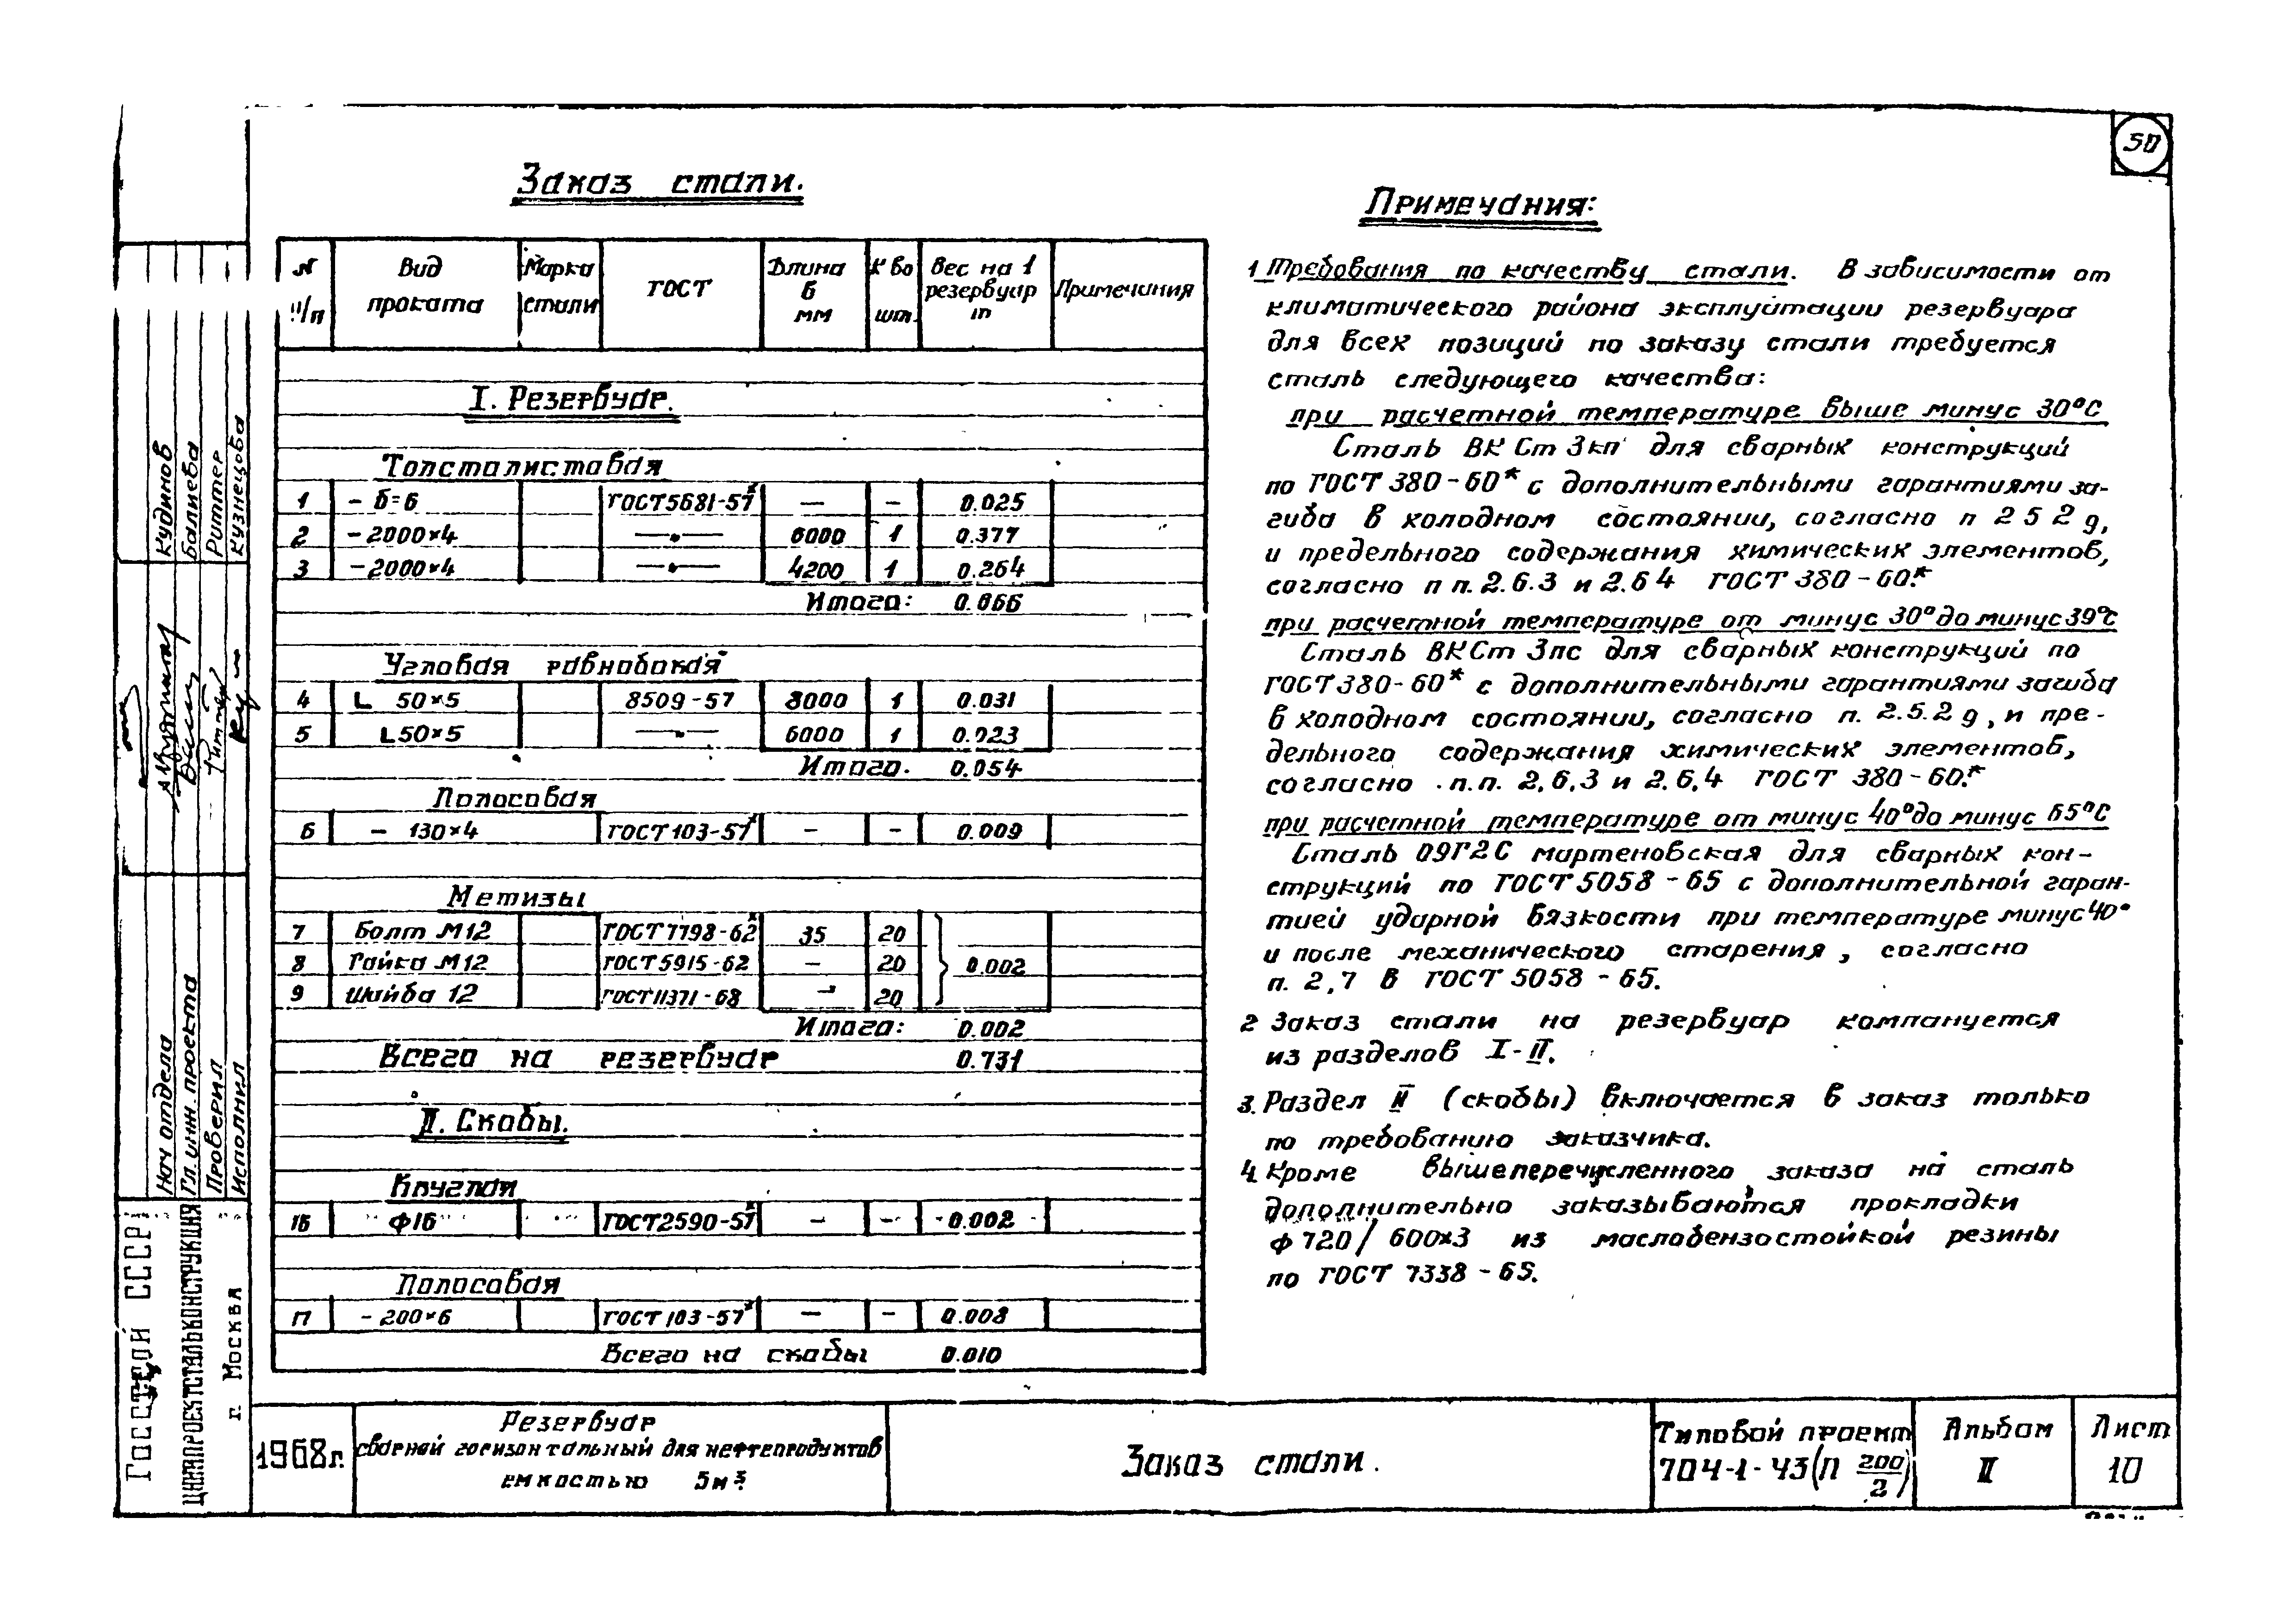 50
Заказ стали.
N п/п | Вид проката | Марка стали | ГОСТ | Длина в мм | К во шт. | Вес на 1 резервуар т | Примечания
I. Резервуар.
Толсталистовая
1 | - δ=6 | | ГОСТ 5681-57* | — | - | 0.025
2 | - 2000×4 | | —"— | 6000 | 1 | 0.377
3 | - 2000×4 | | —"— | 4200 | 1 | 0.264
Итого: 0.666
Угловая равнобокая
4 | L 50×5 | | 8509-57 | 8000 | 1 | 0.031
5 | L 50×5 | | —"— | 6000 | 1 | 0.023
Итого. 0.054
Полосовая
6 | - 130×4 | ГОСТ 103-57* | - | - | 0.009
Метизы
7 | Болт М12 | | ГОСТ 7798-62* | 35 | 20
8 | Гайка М12 | | ГОСТ 5915-62 | — | 20 | 0.002
9 | Шайба 12 | | ГОСТ 11371-68 | — | 20
Итого: 0.002
Всего на резервуар 0.731
II. Скобы.
Круглая
16 | ф16 | | ГОСТ 2590-57* | — | - | 0.002
Полосовая
17 | - 200×6 | | ГОСТ 103-57* | — | - | 0.008
Всего на скобы 0.010
Примечания:
1 Требования по качеству стали. В зависимости от
климатического района эксплуатации резервуара
для всех позиций по заказу стали требуется
сталь следующего качества:
при расчетной температуре выше минус 30°С
Сталь ВК Ст 3кп для сварных конструкций
по ГОСТ 380-60* с дополнительными гарантиями за-
гиба в холодном состоянии, согласно п 2 5 2 д,
и предельного содержания химических элементов,
согласно п п. 2.6.3 и 2.6 4 ГОСТ 380-60.*
при расчетной температуре от минус 30° до минус 39°С
Сталь ВКСт 3пс для сварных конструкций по
ГОСТ 380-60* с дополнительными гарантиями загиба
в холодном состоянии, согласно п. 2.5.2 д, и пре-
дельного содержания химических элементов,
согласно п.п. 2.6.3 и 2.6.4 ГОСТ 380-60.*
при расчетной температуре от минус 40° до минус 65°С
Сталь 09Г2С мартеновская для сварных кон-
струкций по ГОСТ 5058-65 с дополнительной гаран-
тией ударной вязкости при температуре минус 40°
и после механического старения, согласно
п. 2,7 В ГОСТ 5058-65.
2 Заказ стали на резервуар компануется
из разделов I-II.
3. Раздел II (скобы) включается в заказ только
по требованию заказчика.
4. Кроме вышеперечисленного заказа на сталь
дополнительно заказываются прокладки
ф 720/600×3 из маслобензостойкой резины
по ГОСТ 7338-65.
Кудинов
Балиева
Риттер
Кузнецова
Нач отдела
Гл. инж. проекта
Проверил
Исполнил
Госстрой СССР
ЦНИИПРОЕКТСТАЛЬКОНСТРУКЦИЯ
г. Москва
1968г.
Резервуар
сварной горизонтальный для нефтепродуктов
емкостью 5м³
Заказ стали.
Типовой проект
704-1-43(П 200/2)
Альбом
II
Лист
10